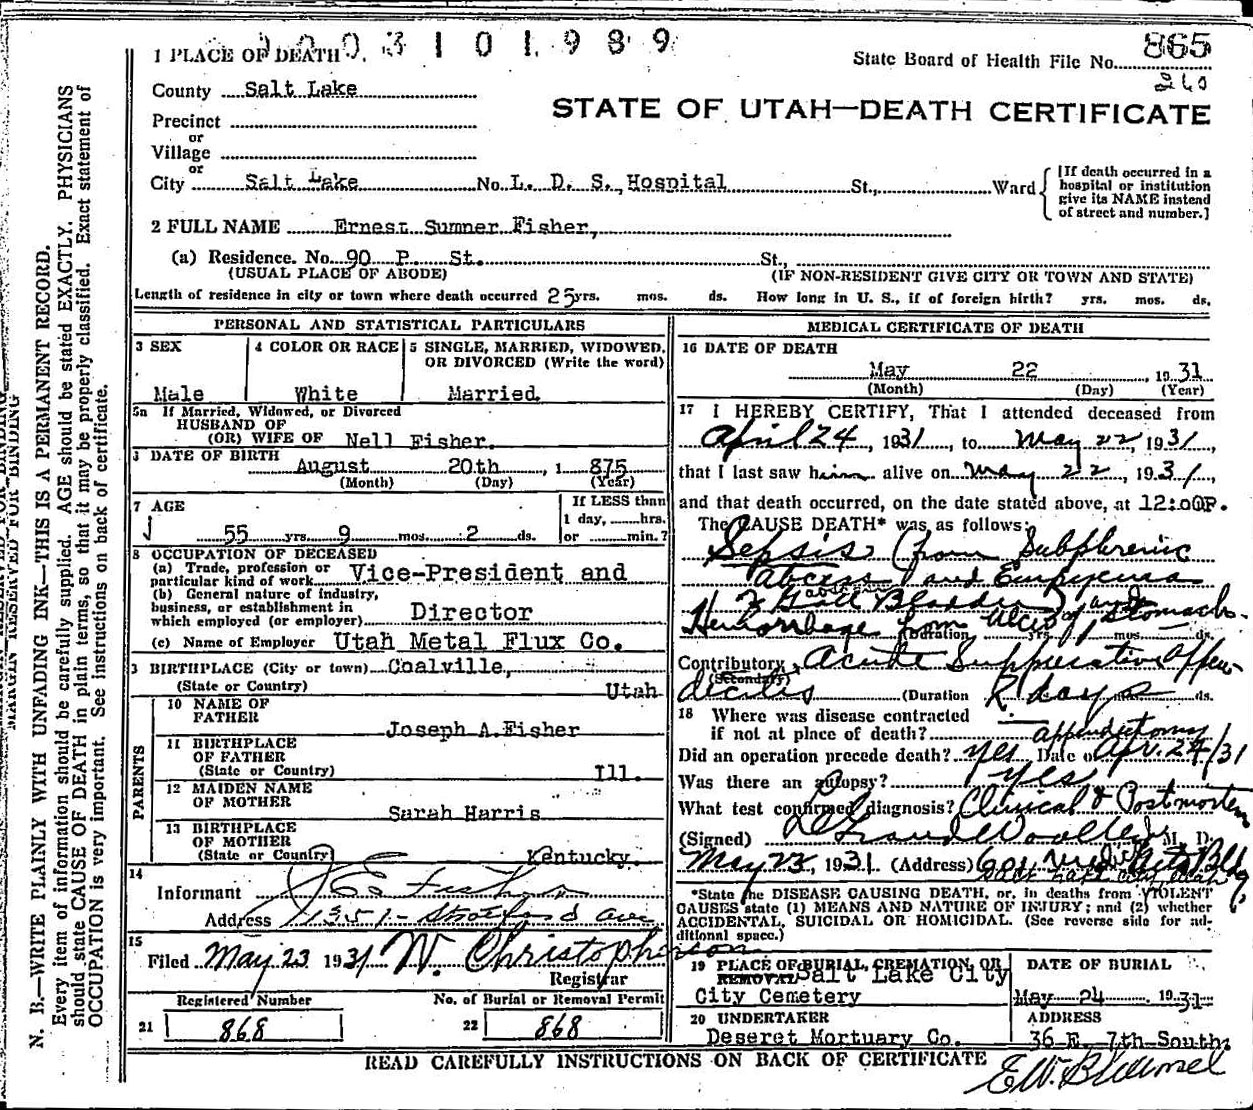 003101989
1 PLACE OF DEATH
State Board of Health File No. 865
260
County Salt Lake
STATE OF UTAH—DEATH CERTIFICATE
Precinct
or
Village
or
City Salt Lake No. L. D. S., Hospital St., Ward
[If death occurred in a
hospital or institution
give its NAME instead
of street and number.]
2 FULL NAME Ernest Sumner Fisher,
(a) Residence. No. 90 P St. St.,
(USUAL PLACE OF ABODE) (IF NON-RESIDENT GIVE CITY OR TOWN AND STATE)
Length of residence in city or town where death occurred 25 yrs. mos. ds. How long in U. S., if of foreign birth? yrs. mos. ds.
PERSONAL AND STATISTICAL PARTICULARS
3 SEX
Male
4 COLOR OR RACE
White
5 SINGLE, MARRIED, WIDOWED,
OR DIVORCED (Write the word)
Married.
5a If Married, Widowed, or Divorced
HUSBAND OF
(OR) WIFE OF Nell Fisher.
DATE OF BIRTH
August 20th, 1 875
(Month) (Day) (Year)
7 AGE
55 yrs. 9 mos. 2 ds.
If LESS than
1 day, hrs.
or min.?
8 OCCUPATION OF DECEASED
(a) Trade, profession or
particular kind of work Vice-President and
(b) General nature of industry,
business, or establishment in
which employed (or employer) Director
(c) Name of Employer Utah Metal Flux Co.
BIRTHPLACE (City or town) Coalville,
(State or Country) Utah
PARENTS
10 NAME OF
FATHER
Joseph A. Fisher
11 BIRTHPLACE
OF FATHER
(State or Country) Ill.
12 MAIDEN NAME
OF MOTHER
Sarah Harris
13 BIRTHPLACE
OF MOTHER
(State or Country) Kentucky.
14
Informant
Address 1351
15
Filed May 23 1931 W. Christopherson
Registrar
Registered Number
21 868
No. of Burial or Removal Permit
22 868
MEDICAL CERTIFICATE OF DEATH
16 DATE OF DEATH
May 22, 1931
(Month) (Day) (Year)
17 I HEREBY CERTIFY, That I attended deceased from
April 24, 1931, to May 22, 1931,
that I last saw him alive on May 22, 1931,
and that death occurred, on the date stated above, at 12:00P.
The CAUSE DEATH* was as follows:
Sepsis (from Subphrenic
abcess) and Empyema
of Gall Bladder) and
Hemorrhage from Ulcer of Stomach
(Duration yrs. mos. ds.
Contributory Acute Suppurative Appen-
(Secondary)
dicites (Duration days ds.
18 Where was disease contracted
if not at place of death? appendectomy
Did an operation precede death? yes Date of Apr. 24/31
Was there an autopsy? yes
What test confirmed diagnosis? Clinical & Postmortem
(Signed) M. D.
May 23, 1931 (Address)
*State the DISEASE CAUSING DEATH, or, in deaths from VIOLENT
CAUSES state (1) MEANS AND NATURE OF INJURY; and (2) whether
ACCIDENTAL, SUICIDAL OR HOMICIDAL. (See reverse side for additional
space.)
19 PLACE OF BURIAL, CREMATION, OR
REMOVAL Salt Lake City
City Cemetery
DATE OF BURIAL
May 24 1931
20 UNDERTAKER
Deseret Mortuary Co.
ADDRESS
36 E. 7th South
READ CAREFULLY INSTRUCTIONS ON BACK OF CERTIFICATE
MARGIN RESERVED FOR BINDING
N. B.—WRITE PLAINLY WITH UNFADING INK—THIS IS A PERMANENT RECORD.
Every item of information should be carefully supplied. AGE should be stated EXACTLY. PHYSICIANS
should state CAUSE OF DEATH in plain terms, so that it may be properly classified. Exact statement of
OCCUPATION is very important. See instructions on back of certificate.